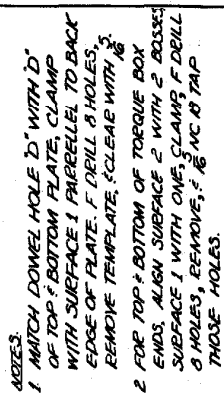 NOTES.
1. MATCH DOWEL HOLE "D" WITH "D"
OF TOP & BOTTOM PLATE, CLAMP
WITH SURFACE 1 PARRELEL TO BACK
EDGE OF PLATE. F DRILL 8 HOLES,
REMOVE TEMPLATE, & CLEAR WITH 5/16.
2 FOR TOP & BOTTOM OF TORQUE BOX
ENDS, ALIGN SURFACE 2 WITH 2 BOSSES,
SURFACE 1 WITH ONE, CLAMP, F DRILL
8 HOLES, REMOVE, & 5/16 NC 18 TAP
THOSE HOLES.